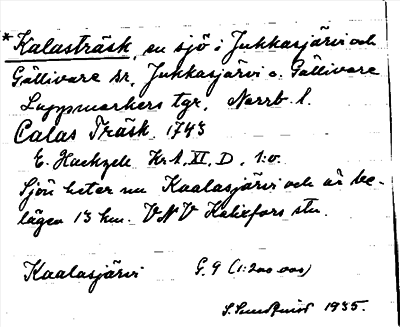 *Kalasträsk, en sjö i Jukkasjärvi och
Gällivare sr, Jukkasjärvi o. Gällivare
Lappmarkers tgr, Norrb. l.
Calas Träsk 1743
E. Hackzell Kr. 1, XI, D, 1:o.
Sjön heter nu Kaalasjärvi och är be-
lägen 13 km. VNV Kalixfors stn.
Kaalasjärvi G. 9 (1:200 000)
1935.